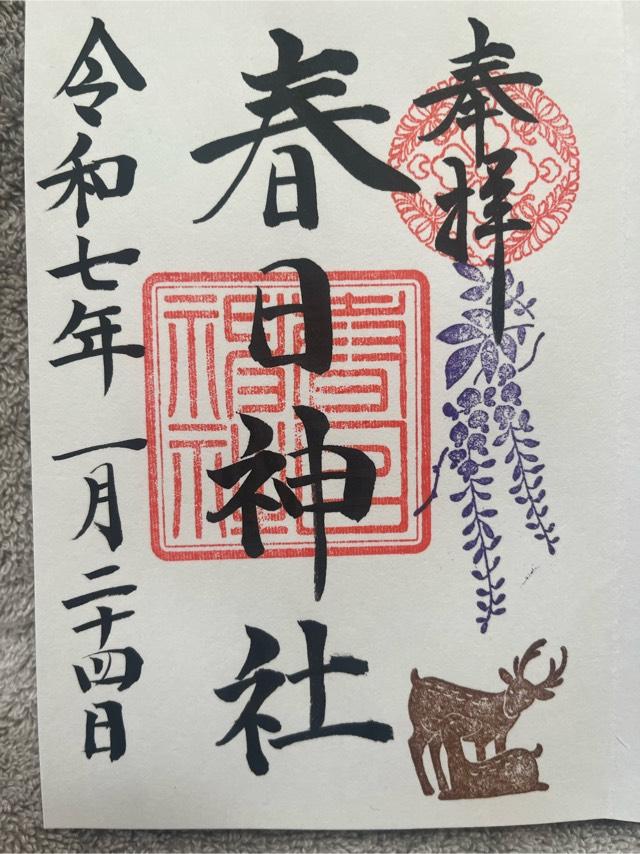 奉拝
春日神社
令和七年 一月二十四日